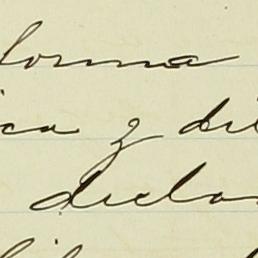 forma
ica y di
decla